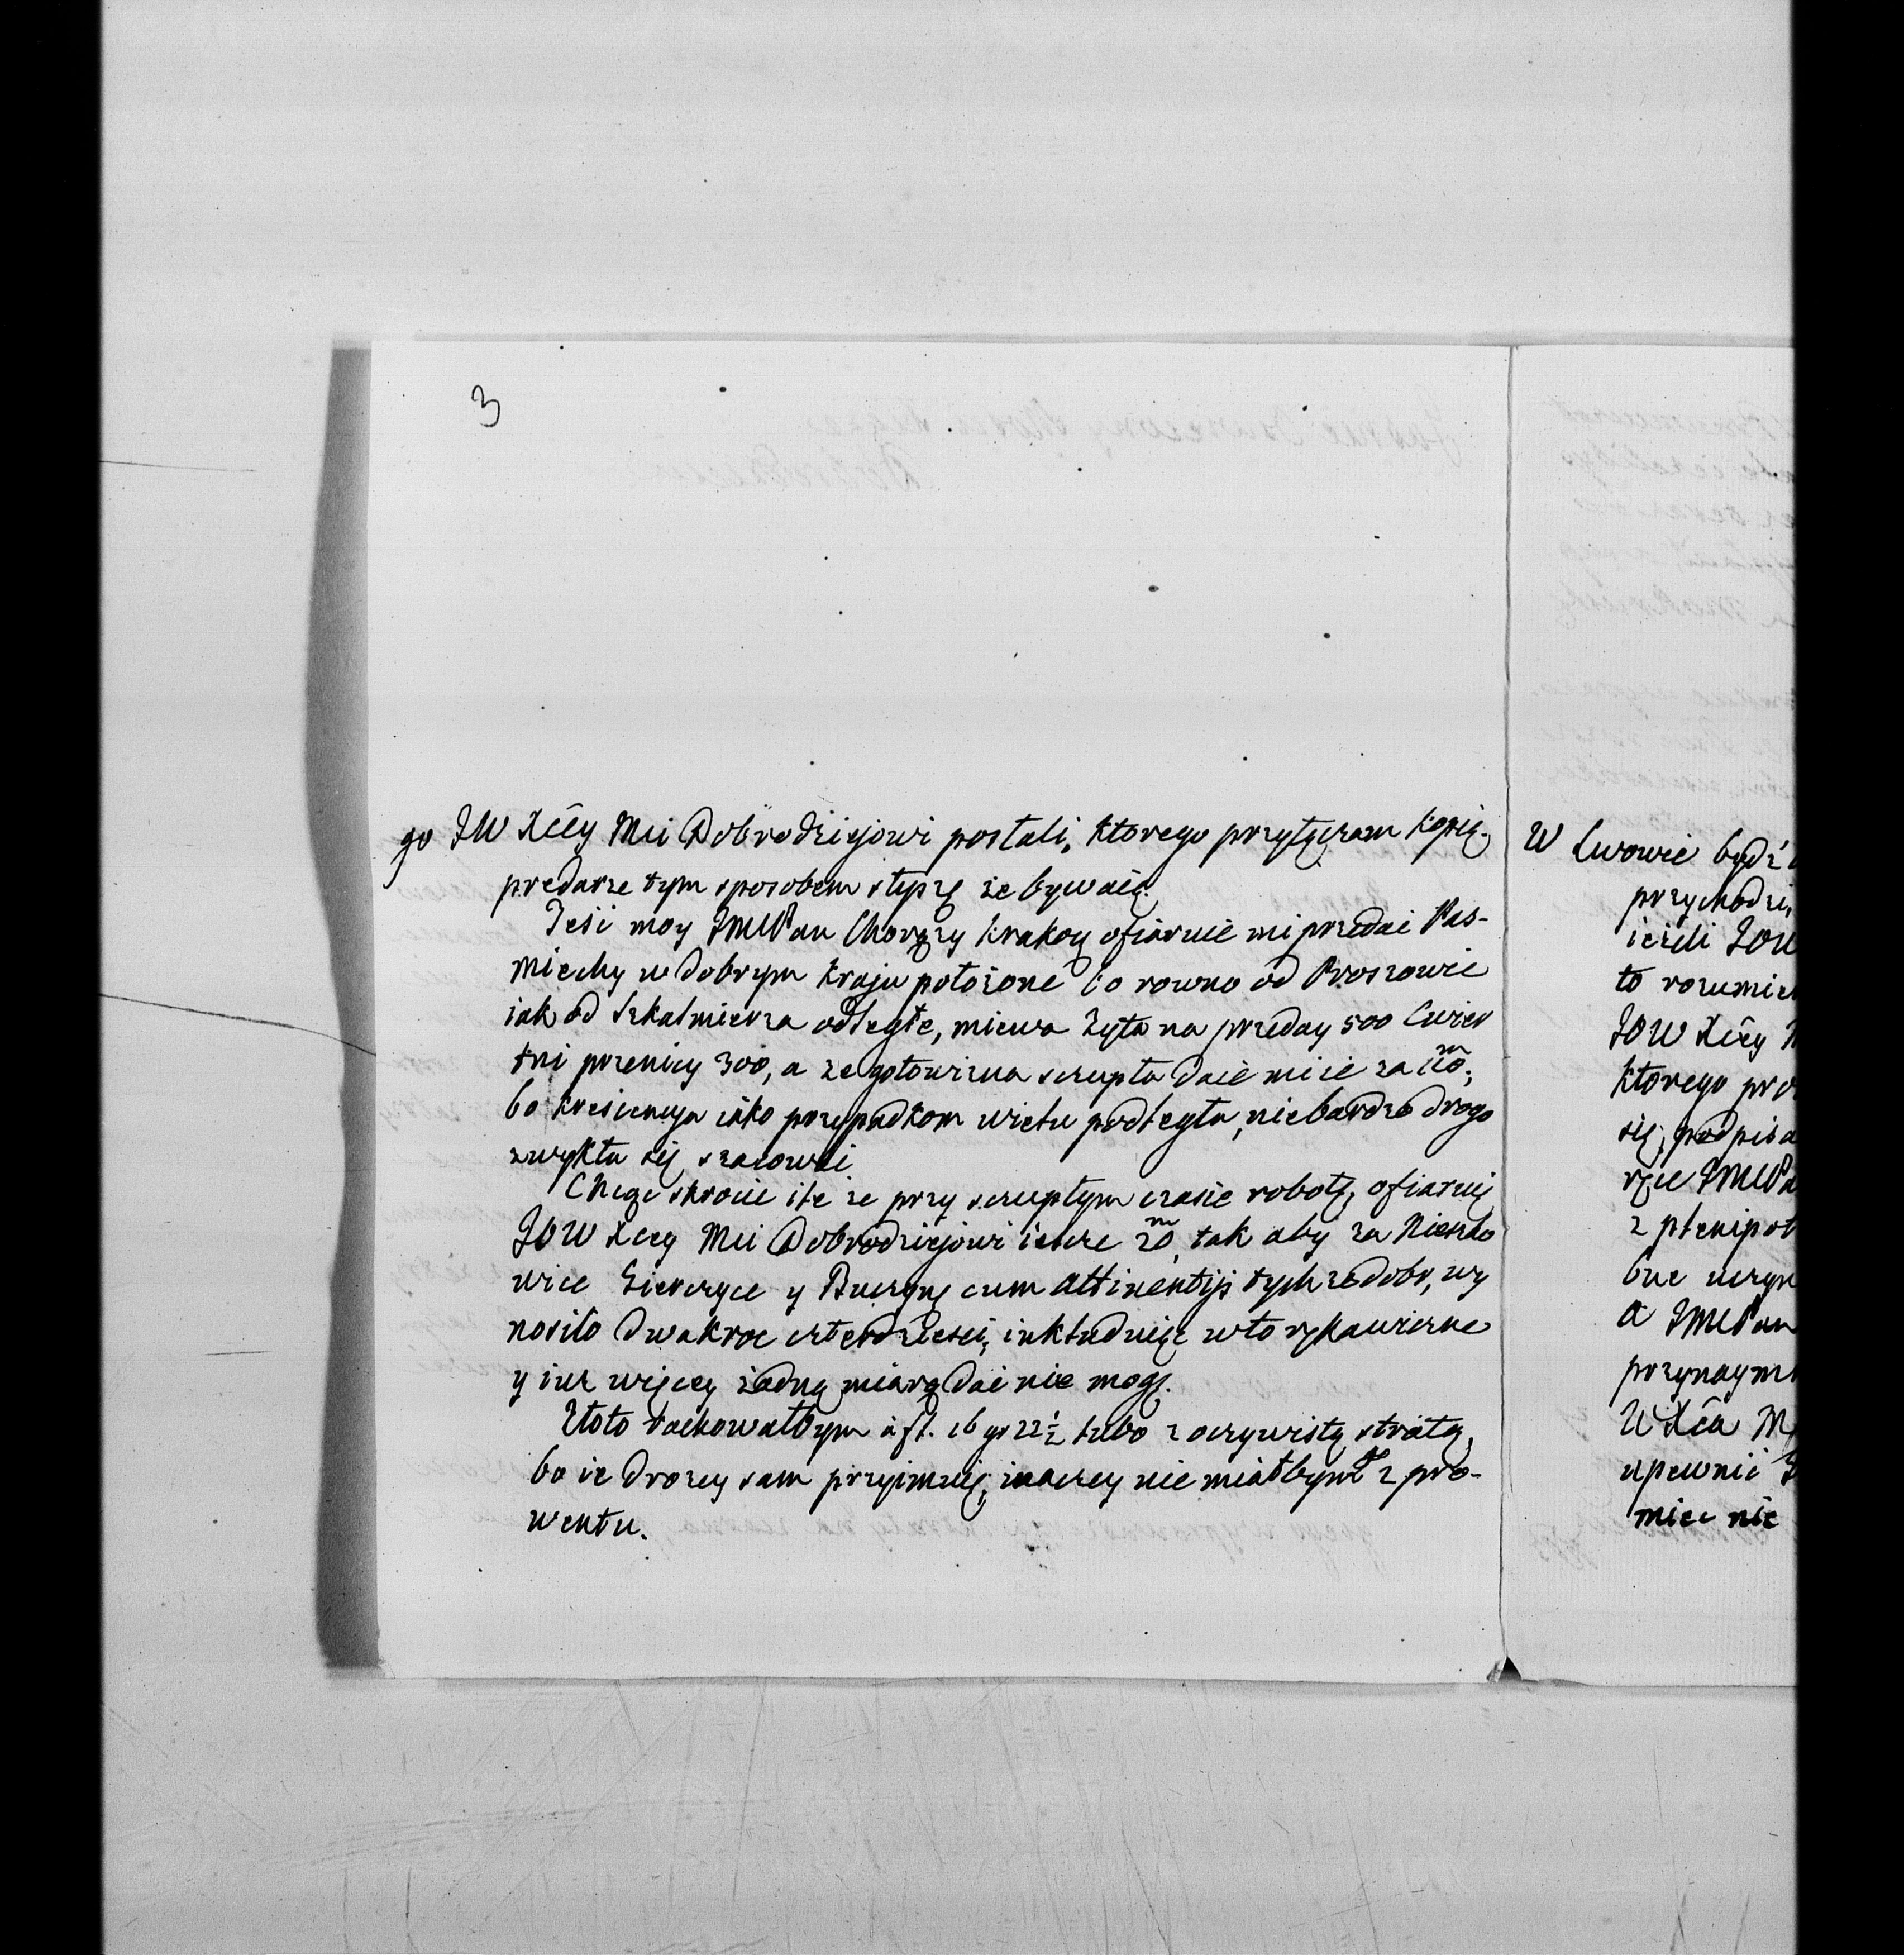 3
go JW Xcẽy Mci Dobrodziejowi postali, ktorego przyłączam kopię.
predarze tym sposobem stępzę ze bywaią.
Teść moy JMCPan Chorąży Krakoẏ ofiaruie mi przedać Pas-
miechy w dobrym kraju położone bo rowno od Proszowic
iak od Szkalmierza odległe, miewa żyta na przeday 500 Cwier
tni pszenicy 300, a ze gotowizna szczupła daie mi ie za 110ᵐ,
bo krescencya iako przypadkom wielu podległa, niebardzo drogo
zwykła się szacować
Chcąc skrocić ile ze przy szczupłym czasie robotę, ofiaruię
JOW Xcey Mci Dobrodziejowi ieszcze 20ᵐ, tak aby za Nieszko
wice Gierczyce y Buczynę cum attinentijs tychze dobr, wy
nosiło dwakroc czterdzieści, inkluduiąc w to rękawiczne
y iuz więcey żadną miarą dać nie mogę.
Złoto rachowałbym à fl. 16 gr 22½ lubo z oczywistą stratą,
bo ie drozey sam przyimuię, inaczey nie miałbym go z pro-
wentu.
W Lwowie będź
przychodzi,
ieżeli JOW
to rozumie
JOW Xcẽy M
ktorego pro
się, podpisa
ręce JMCPa
z plenipot
bne uczyn
a JMCPan
przynaym
W Xcia M
upewnić J
miec nie